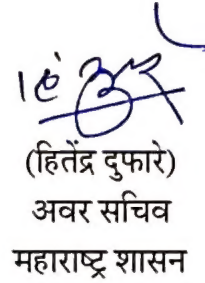 (हितेंद्र दुफारे)
अवर सचिव
महाराष्ट्र शासन